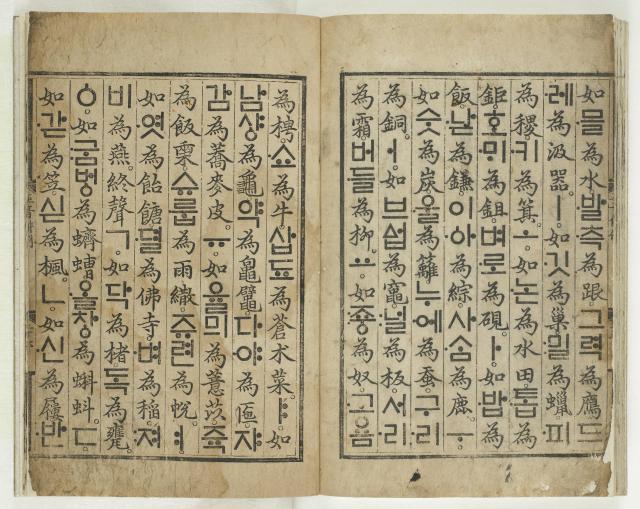 如믈為水。발측為跟。그력為鴈。드
레為汲器。ㅣ。如깃為巢。밀為蠟。피
為稷。키為箕。ㅗ。如논為水田。톱為
鉅。호ᄆᆡ為鉏。벼로為硯。ㅏ。如밥為
飯。낟為鎌。이ᅌᅡ為綜。사ᄉᆞᆷ為鹿。ㅜ。
如숫為炭。울為籬。누에為蚕。구리
為銅。ㅓ。如브ᅀᅥᆸ為竈。널為板。서리
為霜。버들為柳。ㅛ。如죠ᇰ為奴。고욤
為梬。쇼為牛。삽됴為蒼朮菜。ㅑ。如
남샤ᇰ為龜。약為𪓬鼊。다야為匜。쟈
감為蕎麥皮。ㅠ。如율믜為薏苡。쥭
為飯𣖄。슈룹為雨繖。쥬련為帨。ㅕ。
如엿為飴餹。뎔為佛寺。벼為稻。져
비為燕。終聲ㄱ。如닥為楮。독為甕。
ㆁ。如굼버ᇰ為蠐螬。올차ᇰ為蝌蚪。ㄷ。
如갇為笠。싣為楓。ㄴ。如신為屨。반